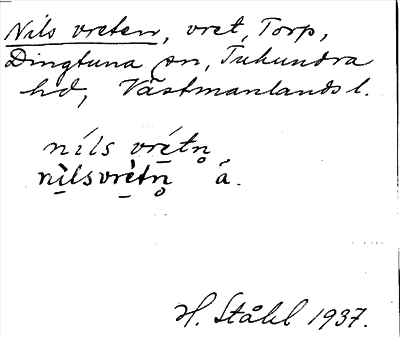 Nils vreten, vret, Torp,
Dingtuna sn, Tuhundra
hd, Västmanlands l.
níls vré̱tn̥
nì̱lsvrè̱tn̥ á.
H. Ståhl 1937.